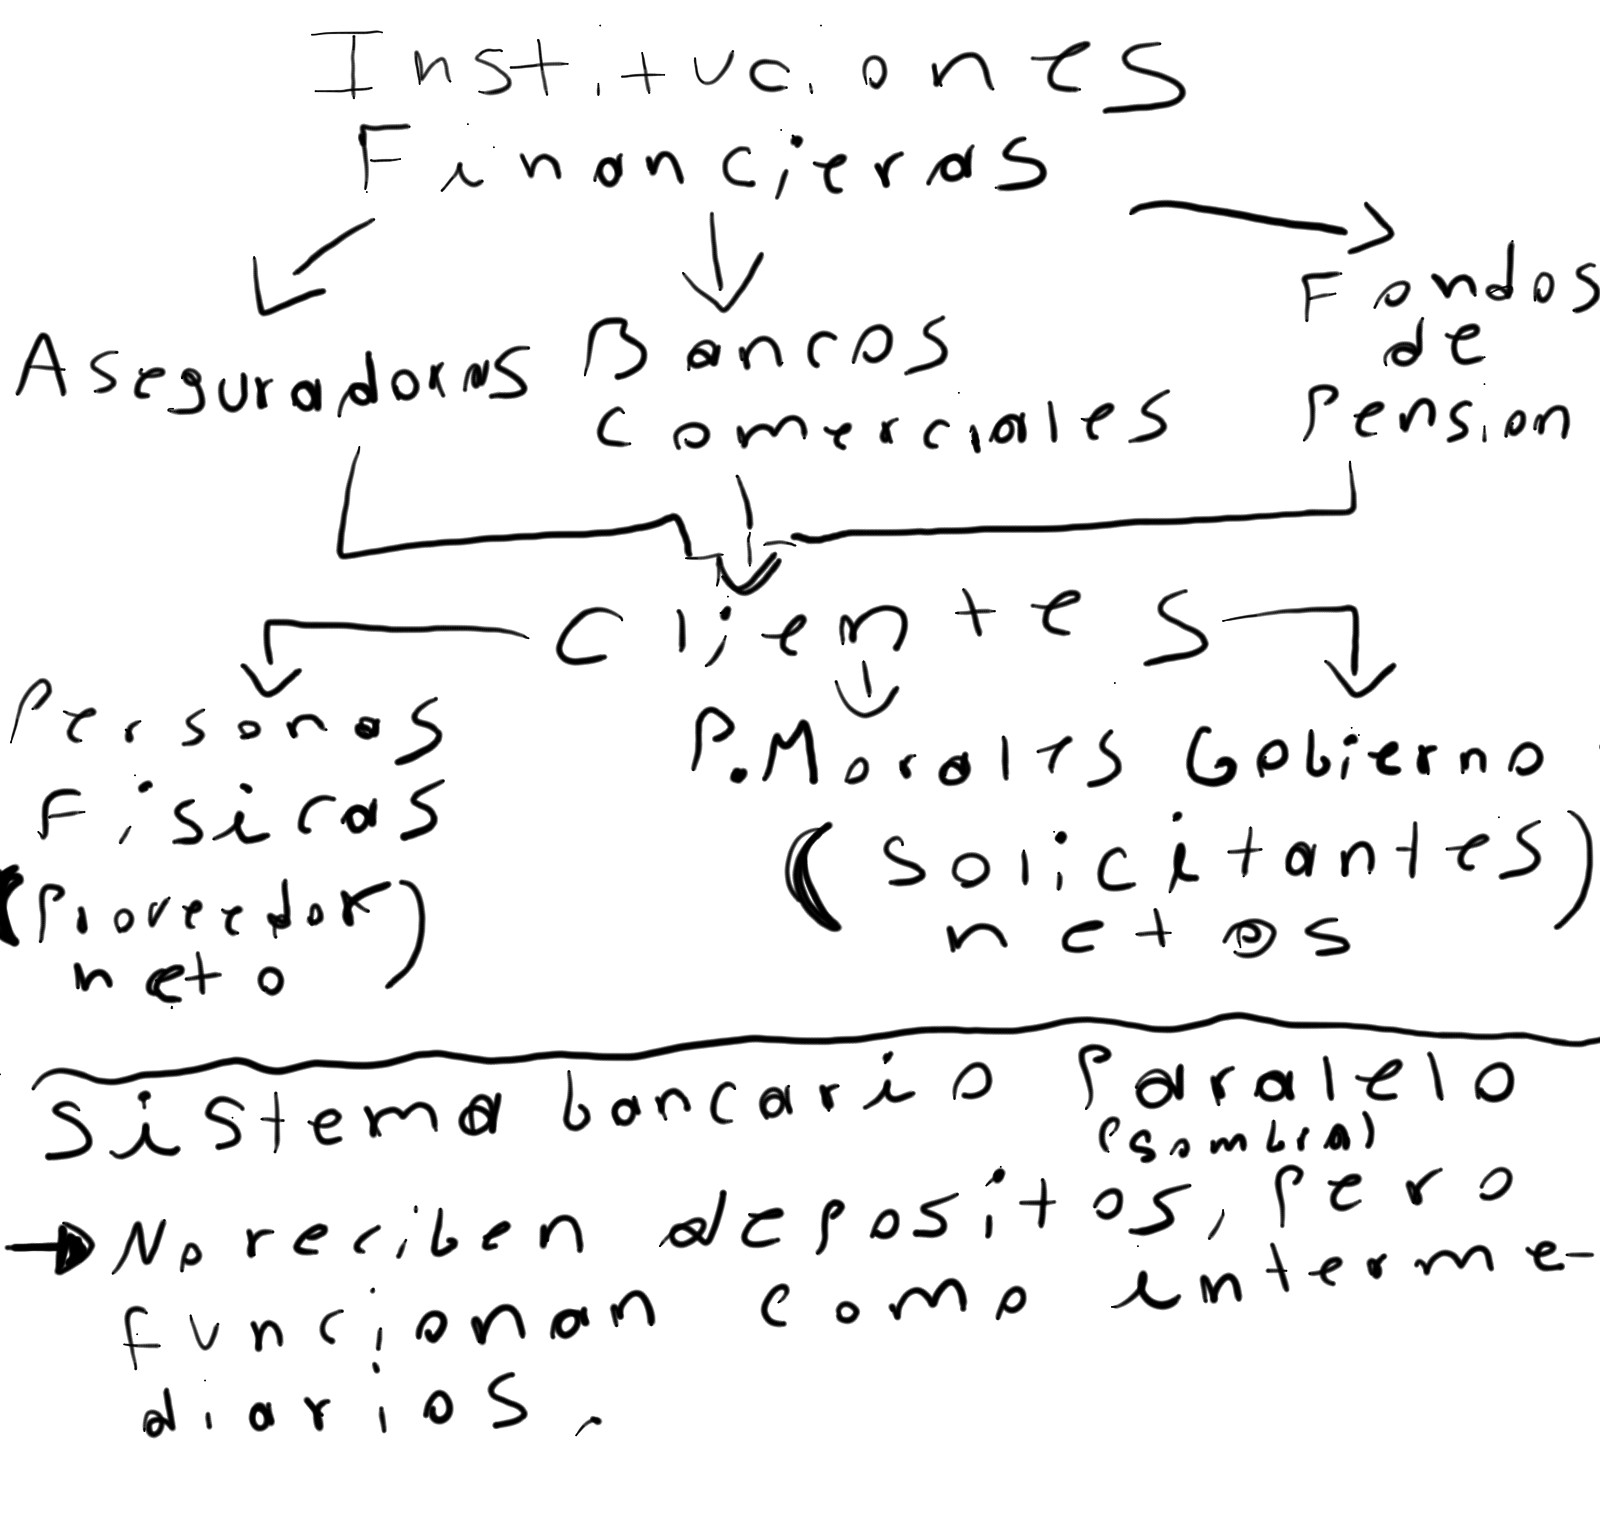 Instituciones
Financieras
Aseguradoras
Bancos
Comerciales
Fondos
de
Pension
Clientes
Personas
Fisicas
(Proveedor
neto)
P.Morales Gobierno
(Solicitantes)
netos
Sistema bancario Paralelo
(sombra)
No reciben depositos, pero
funcionan como interme-
diarios.